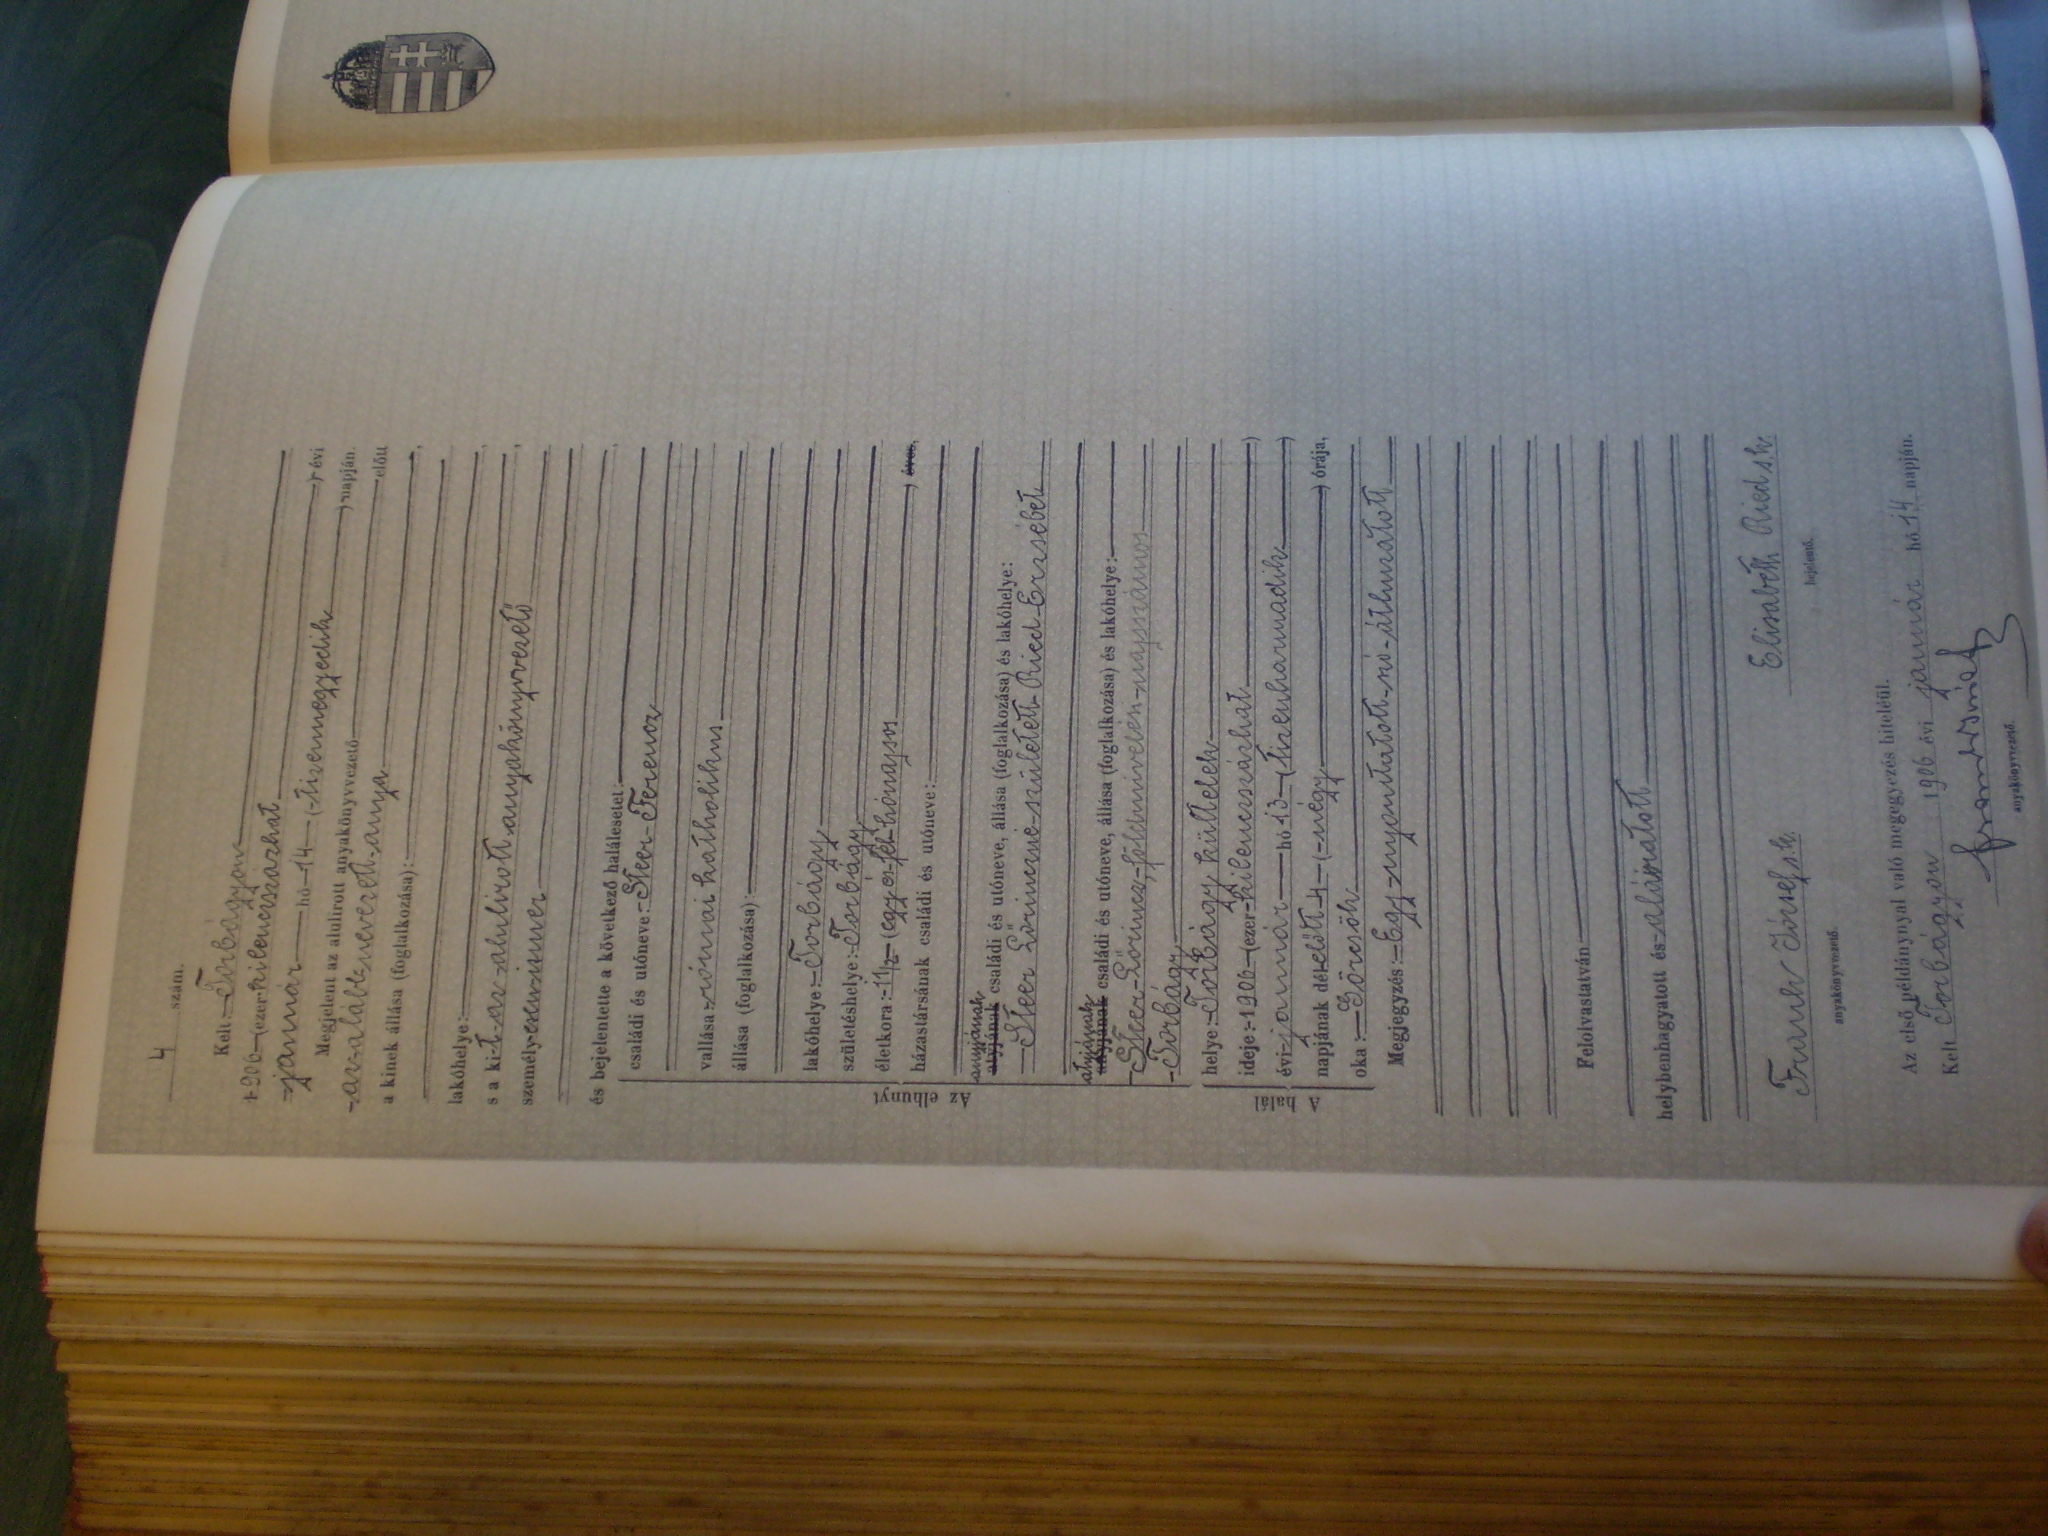 4 szám.
Kelt: Torbágyon
1906 (ezerkilencszázhat
január hó 14 (tizennegyedik ) évi
) napján.
Megjelent az alulirott anyakönyvvezető előtt
az alább nevezett anya
a kinek állása (foglalkozása): ,
lakóhelye: ,
s a kit az alulirott anyakönyvvezető ,
személyesen ismer
és bejelentette a következő halálesetet:
Az elhunyt
családi és utóneve: Steer Ferencz
vallása: római katholikus
állása (foglalkozása):
lakóhelye: Torbágy
születéshelye: Torbágy
életkora: 1 1/2 (egy és fél hónapos ) éves,
házastársának családi és utóneve:
anyjának
atyjának családi és utóneve, állása (foglalkozása) és lakóhelye:
Steer Lőrinczné született Ried Erzsébet
atyjának
anyjának családi és utóneve, állása (foglalkozása) és lakóhelye:
Steer Lőrincz, földmivelés napszámos
Torbágy
A halál
helye: Torbágy kültelek
ideje: 1906 (ezer kilencszázhat )
évi január hó 13 (tizenharmadik )
napjának délelőtt 4 (négy ) órája,
oka: Görcsök
Megjegyzés: Egy nyomtatott szó áthuzatott
Felolvastatván
helybenhagyatott és aláiratott
Frank József s.k. Elisabéth Ried s.k.
anyakönyvvezető. bejelentő.
Az első példánynyal való megegyezés hiteléül.
Kelt Torbágyon 1906 évi január hó 14 napján.
anyakönyvvezető.